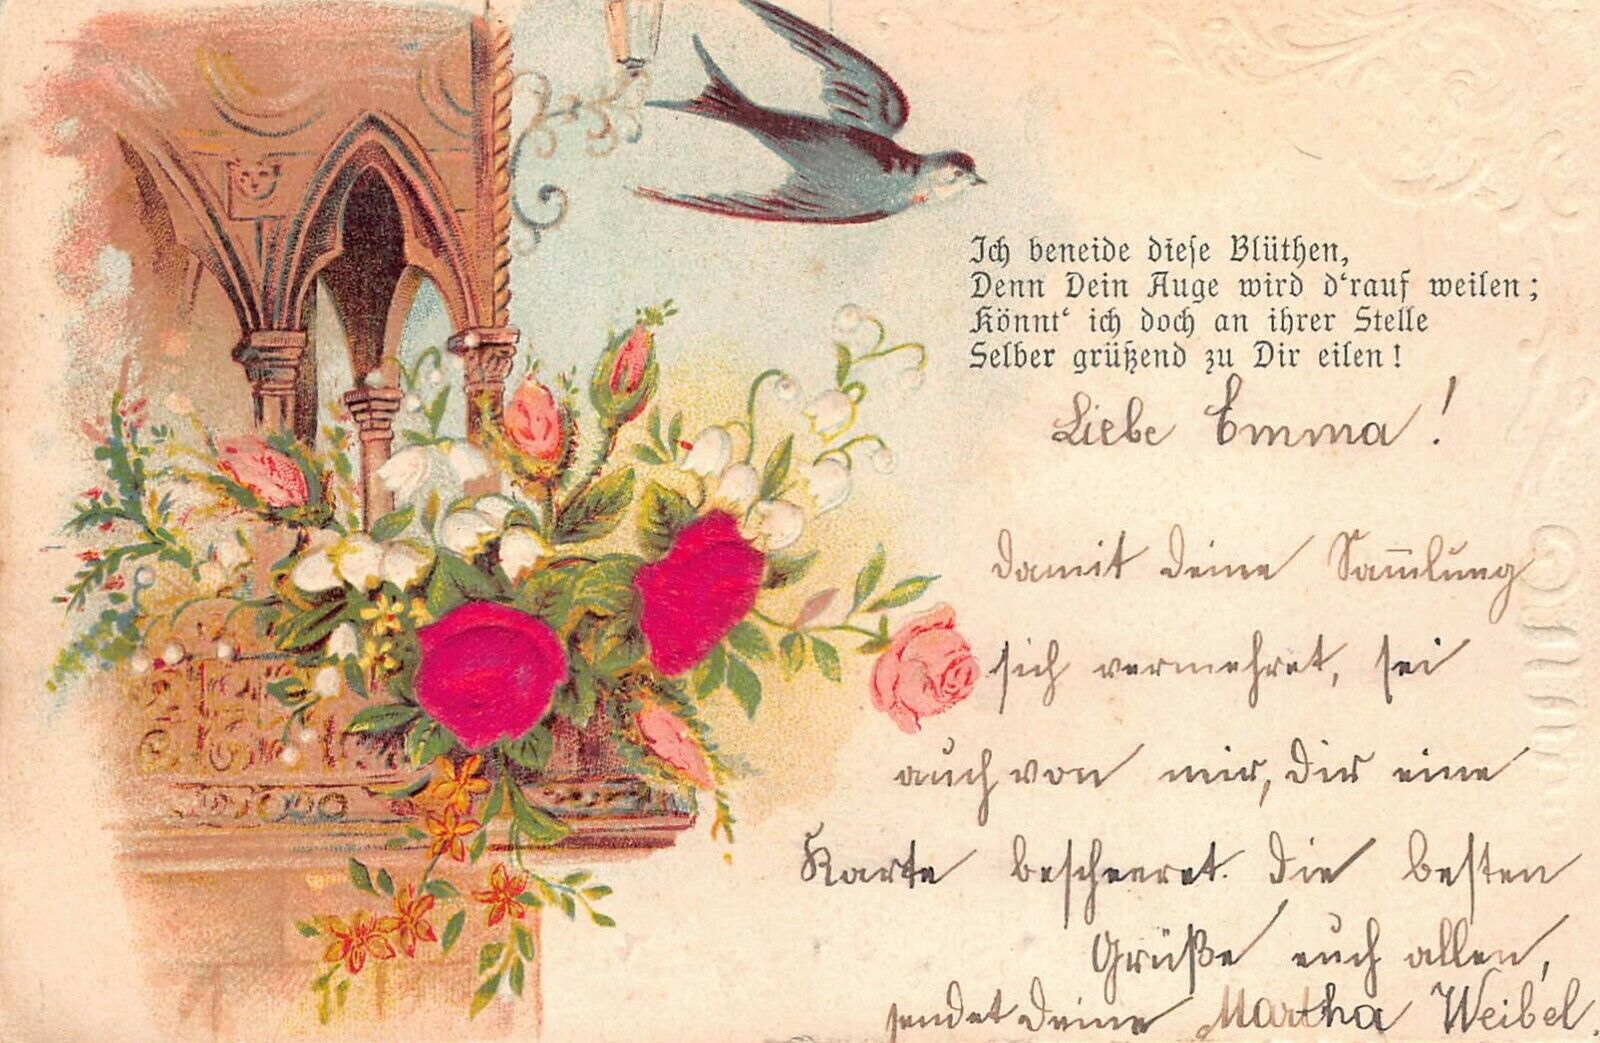 Ich beneide diese Blüthen,
Denn Dein Auge wird d'rauf weilen;
Könnt' ich doch an ihrer Stelle
Selber grüßend zu Dir eilen!
Liebe Emma!
Damit deine Sam̅lung
sich vermehret, sei
auch von mir, dir eine
Karte bescheeret. Die besten
Grüße euch allen,
sendet Deine Martha Weibel.